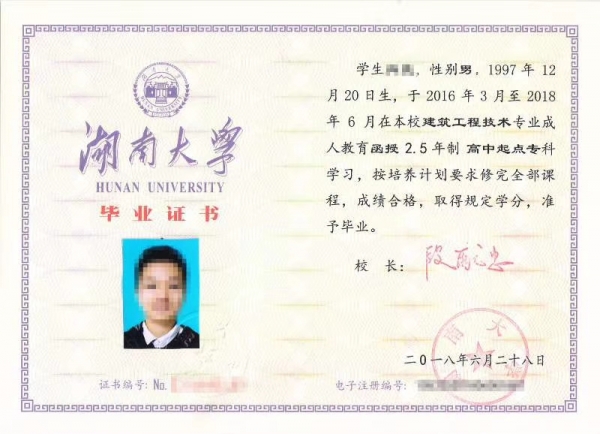 湖南大学
HUNAN UNIVERSITY
毕业证书
证书编号: No.
学生，性别男，1997 年 12
月 20 日生，于 2016 年 3 月至 2018
年 6 月在本校建筑工程技术专业成
人教育函授 2.5 年制 高中起点专科
学习，按培养计划要求修完全部课
程，成绩合格，取得规定学分，准
予毕业。
校 长：
二〇一八年六月二十八日
电子注册编号：